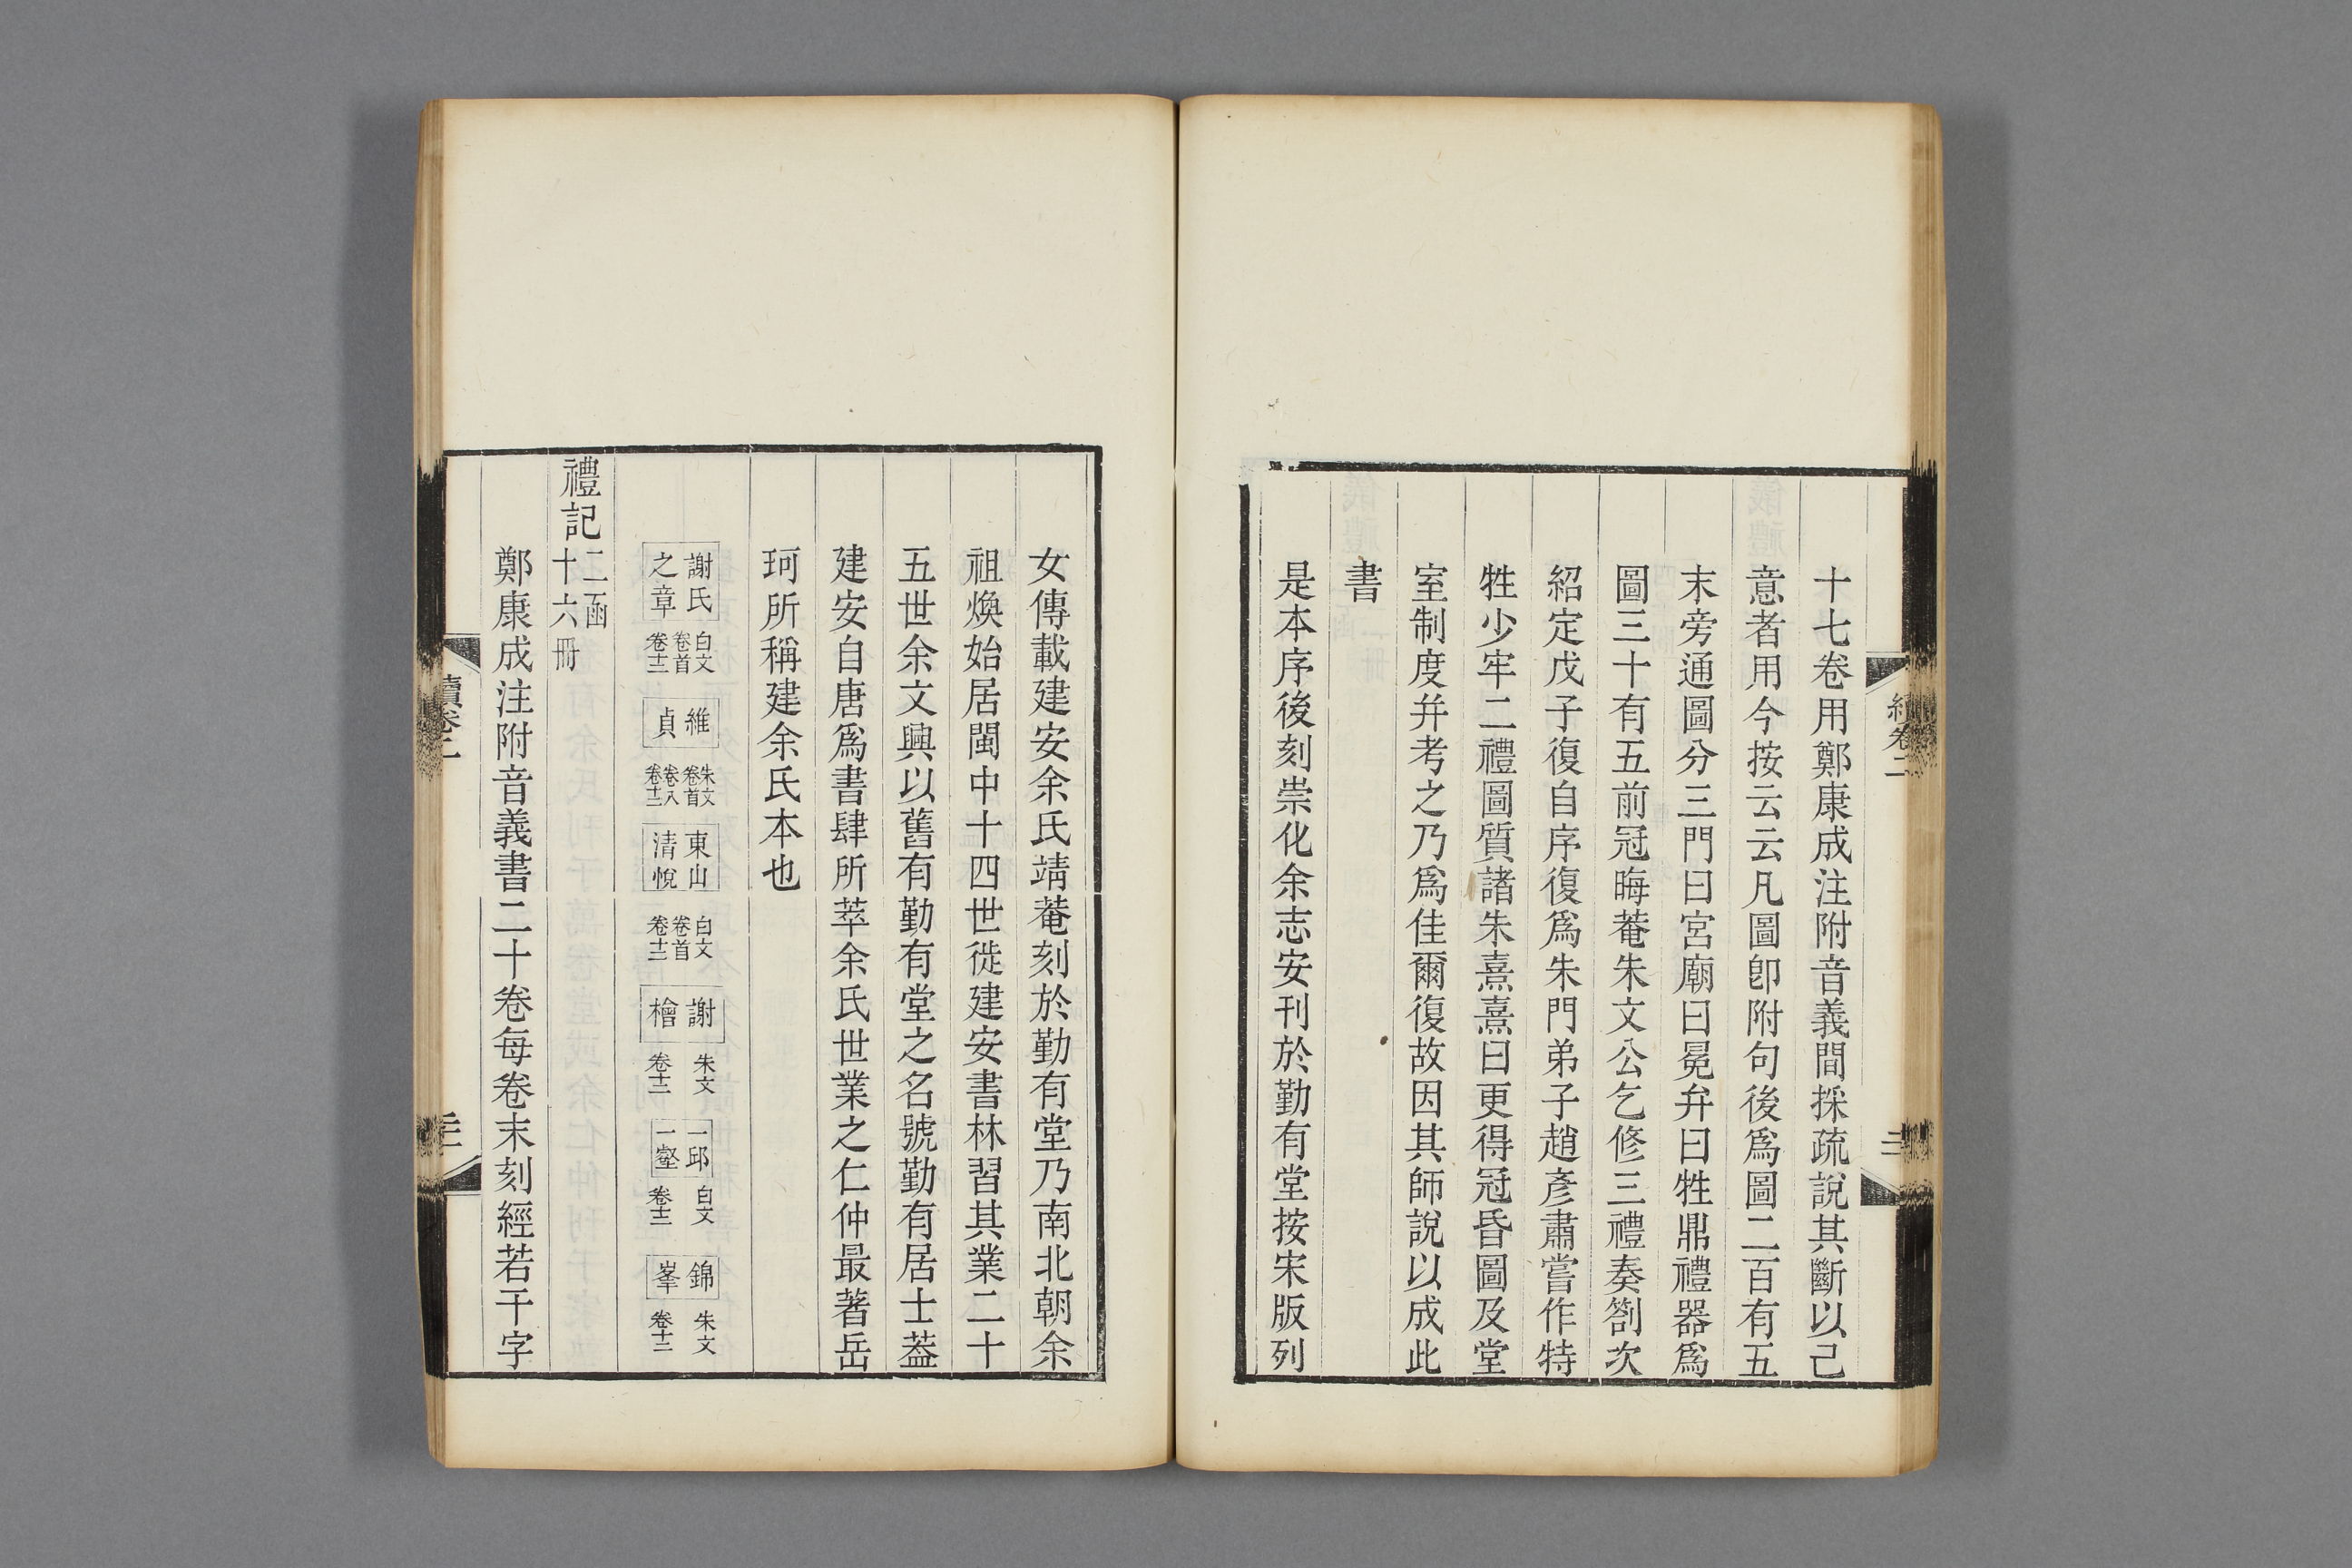 續卷二
二
十七卷用鄭康成注附音義間採疏說其斷以己
意者用今按云云凡圖卽附句後爲圖二百有五
末旁通圖分三門曰宮廟曰冕弁曰牲鼎禮器爲
圖三十有五前冠晦菴朱文公乞修三禮奏劄次
紹定戊子復自序復爲朱門弟子趙彥肅嘗作特
牲少牢二禮圖質諸朱熹熹曰更得冠昏圖及堂
室制度幷考之乃爲佳爾復故因其師說以成此
書
是本序後刻崇化余志安刊於勤有堂按宋版列
女傳載建安余氏靖菴刻於勤有堂乃南北朝余
祖煥始居閩中十四世徙建安書林習其業二十
五世余文興以舊有勤有堂之名號勤有居士葢
建安自唐爲書肆所萃余氏世業之仁仲最著岳
珂所稱建余氏本也
謝氏之章 白文 卷首 卷十二
維貞 朱文 卷首 卷八 卷十二
東山清悅 白文 卷首 卷十二
謝檜 朱文 卷十二
一邱一壑 白文 卷十二
錦峯 朱文 卷十二
禮記 二函十六冊
鄭康成注附音義書二十卷每卷末刻經若干字
續卷二